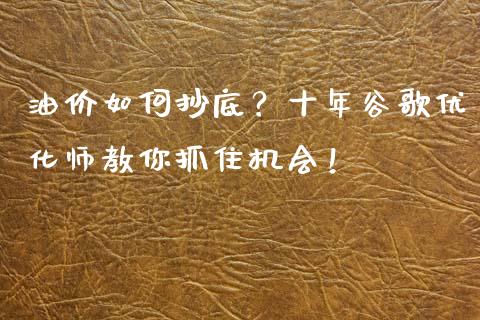 油价如何抄底？十年谷歌优
化师教你抓住机会！